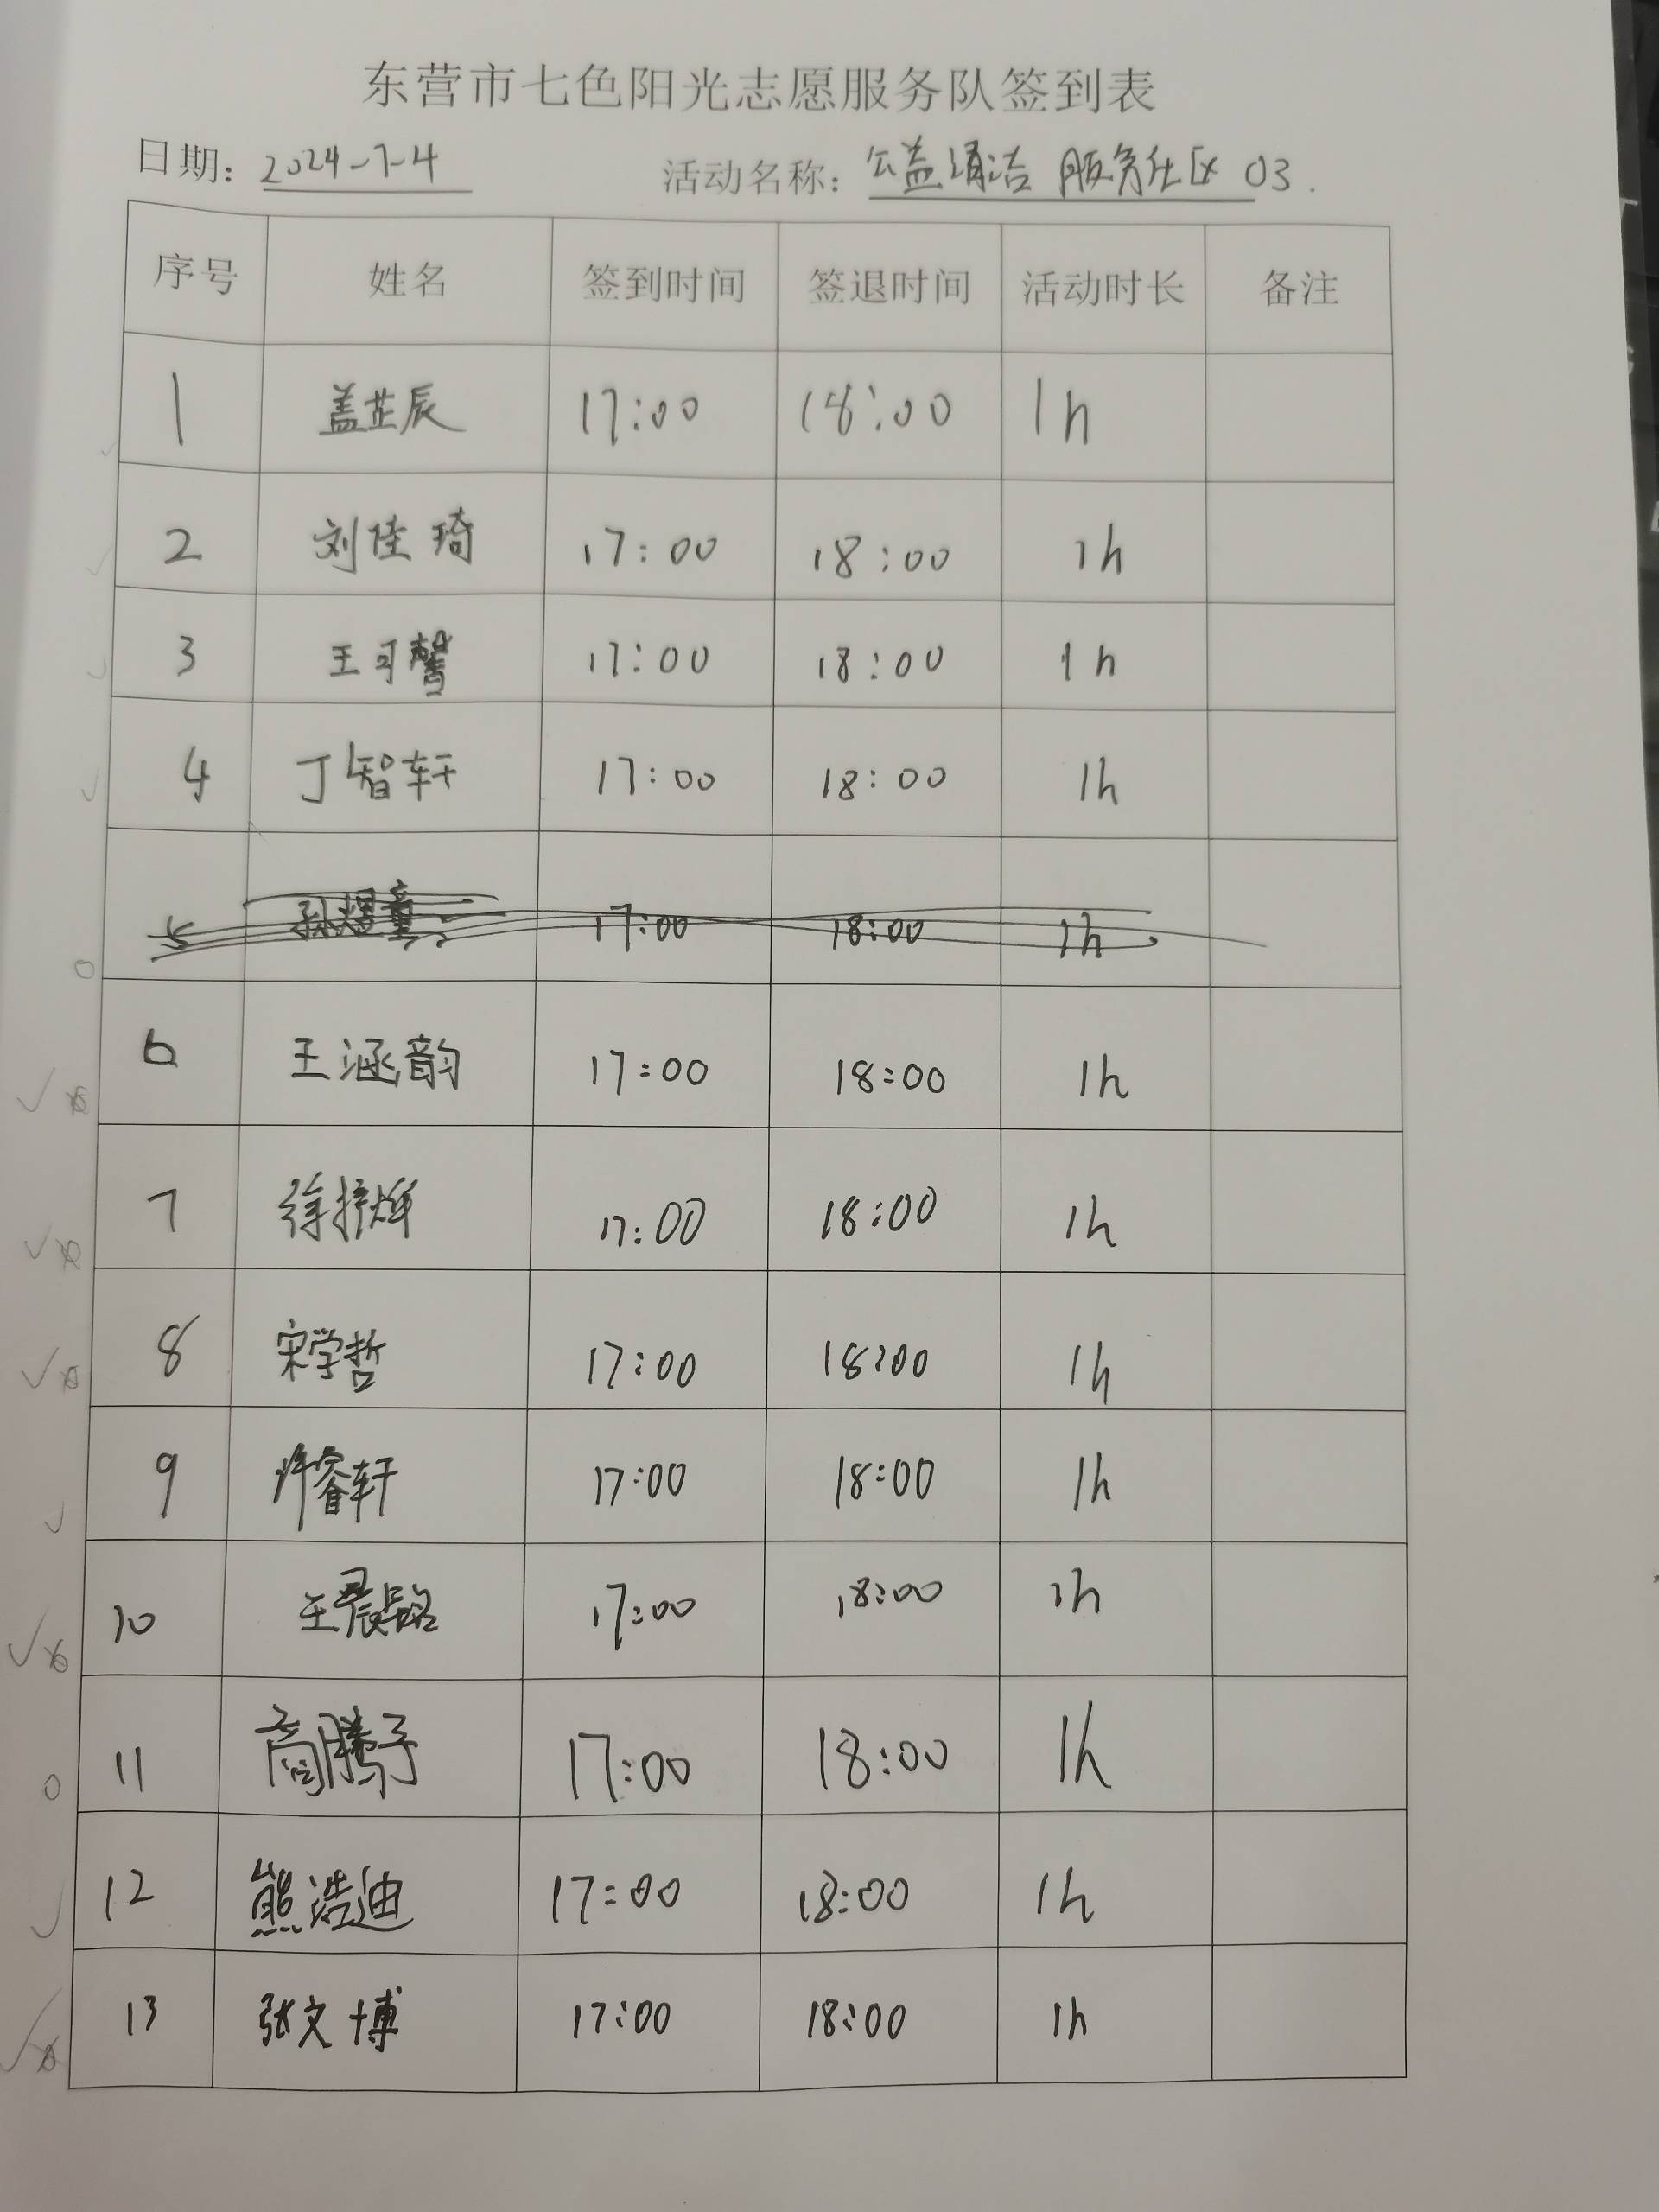 东营市七色阳光志愿服务队签到表
日期：2024-7-4 活动名称：公益清洁 服务社区 03.
序号 姓名 签到时间 签退时间 活动时长 备注
1 盖芷辰 17:00 18:00 1h
2 刘佳琦 17:00 18:00 1h
3 王可馨 17:00 18:00 1h
4 丁智轩 17:00 18:00 1h
5 17:00 18:00 1h
6 王涵韵 17:00 18:00 1h
7 徐梓烨 17:00 18:00 1h
8 宋学哲 17:00 18:00 1h
9 许睿轩 17:00 18:00 1h
10 王晨铭 17:00 18:00 1h
11 商腾予 17:00 18:00 1h
12 熊浩迪 17:00 18:00 1h
13 张文博 17:00 18:00 1h